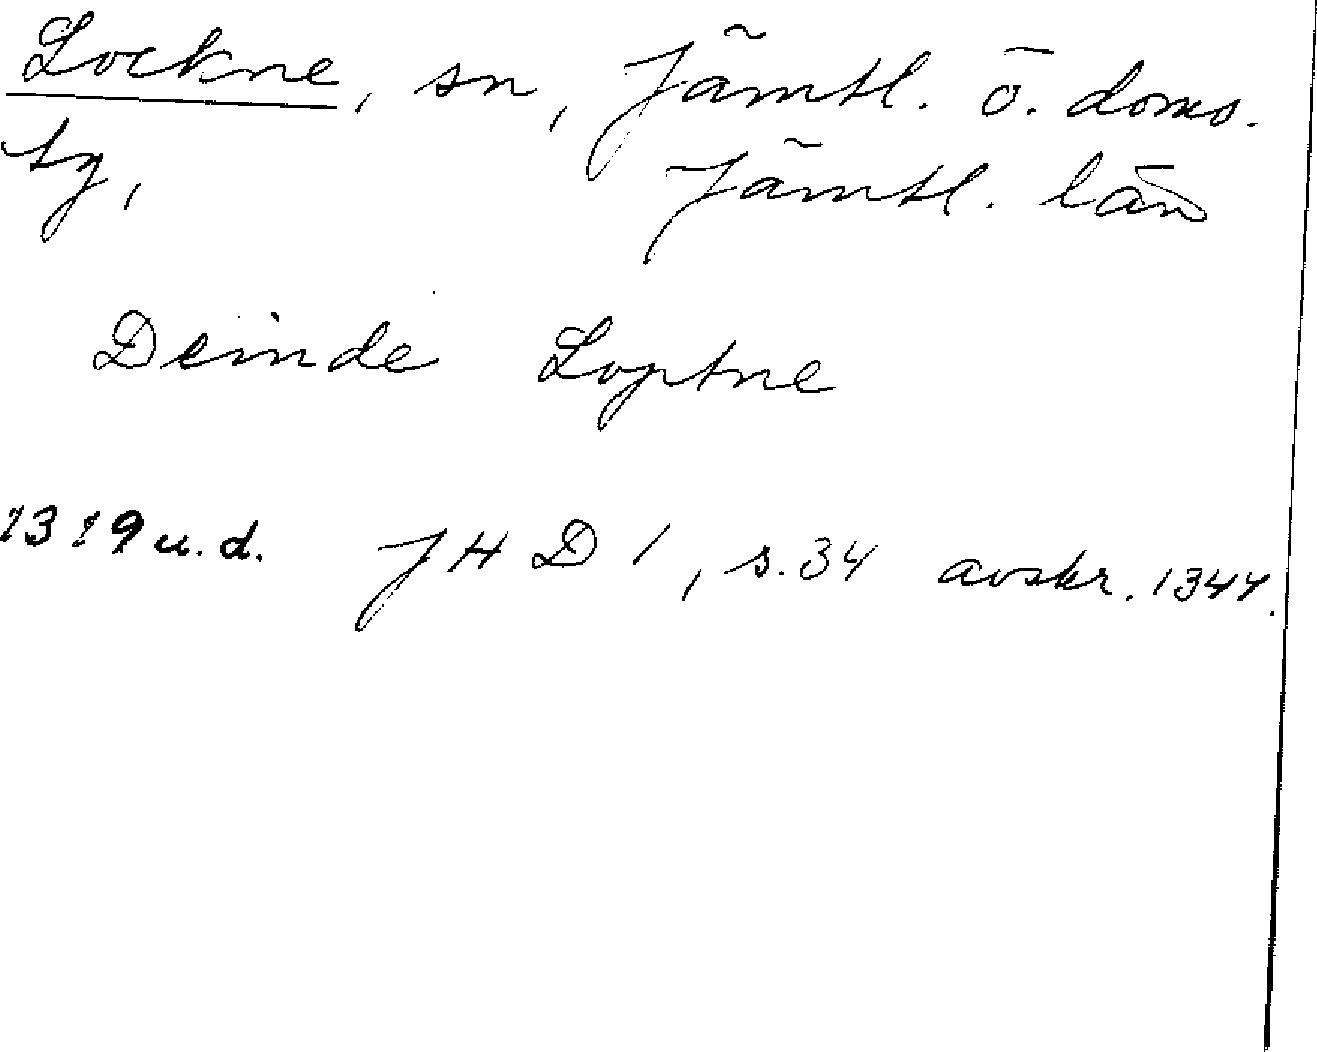 Lockne, sn, Jämtl. ö. doms.
tg, Jämtl. län
Deinde Loptne
1319 u. d. JHD 1, s. 34 avskr. 1344.